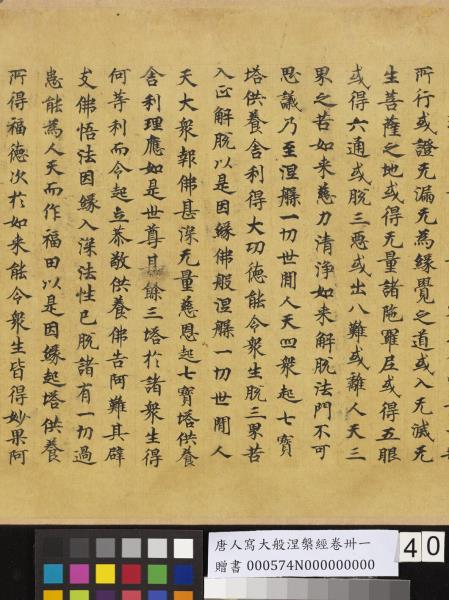 所行或證无漏无為緣覺之道或入无滅无
生菩薩之地或得无量諸陁羅尼或得五眼
或得六通或脫三惡或出八難或離人天三
界之苦如來慈力清淨如來解脫法門不可
思議乃至涅槃一切世閒人天四衆起七寶
塔供養舍利得大功德能令衆生脫三界苦
入正解脫以是因緣佛般涅槃一切世閒人
天大衆報佛甚深无量慈恩起七寶塔供養
舍利理應如是世尊其餘三塔於諸衆生得
何等利而令起立恭敬供養佛告阿難其辟
支佛悟法因緣入深法性已脫諸有一切過
患能為人天而作福田以是因緣起塔供養
所得福德次於如來能令衆生皆得妙果阿
唐人寫大般涅槃經卷卅一
贈書 000574N000000000
40